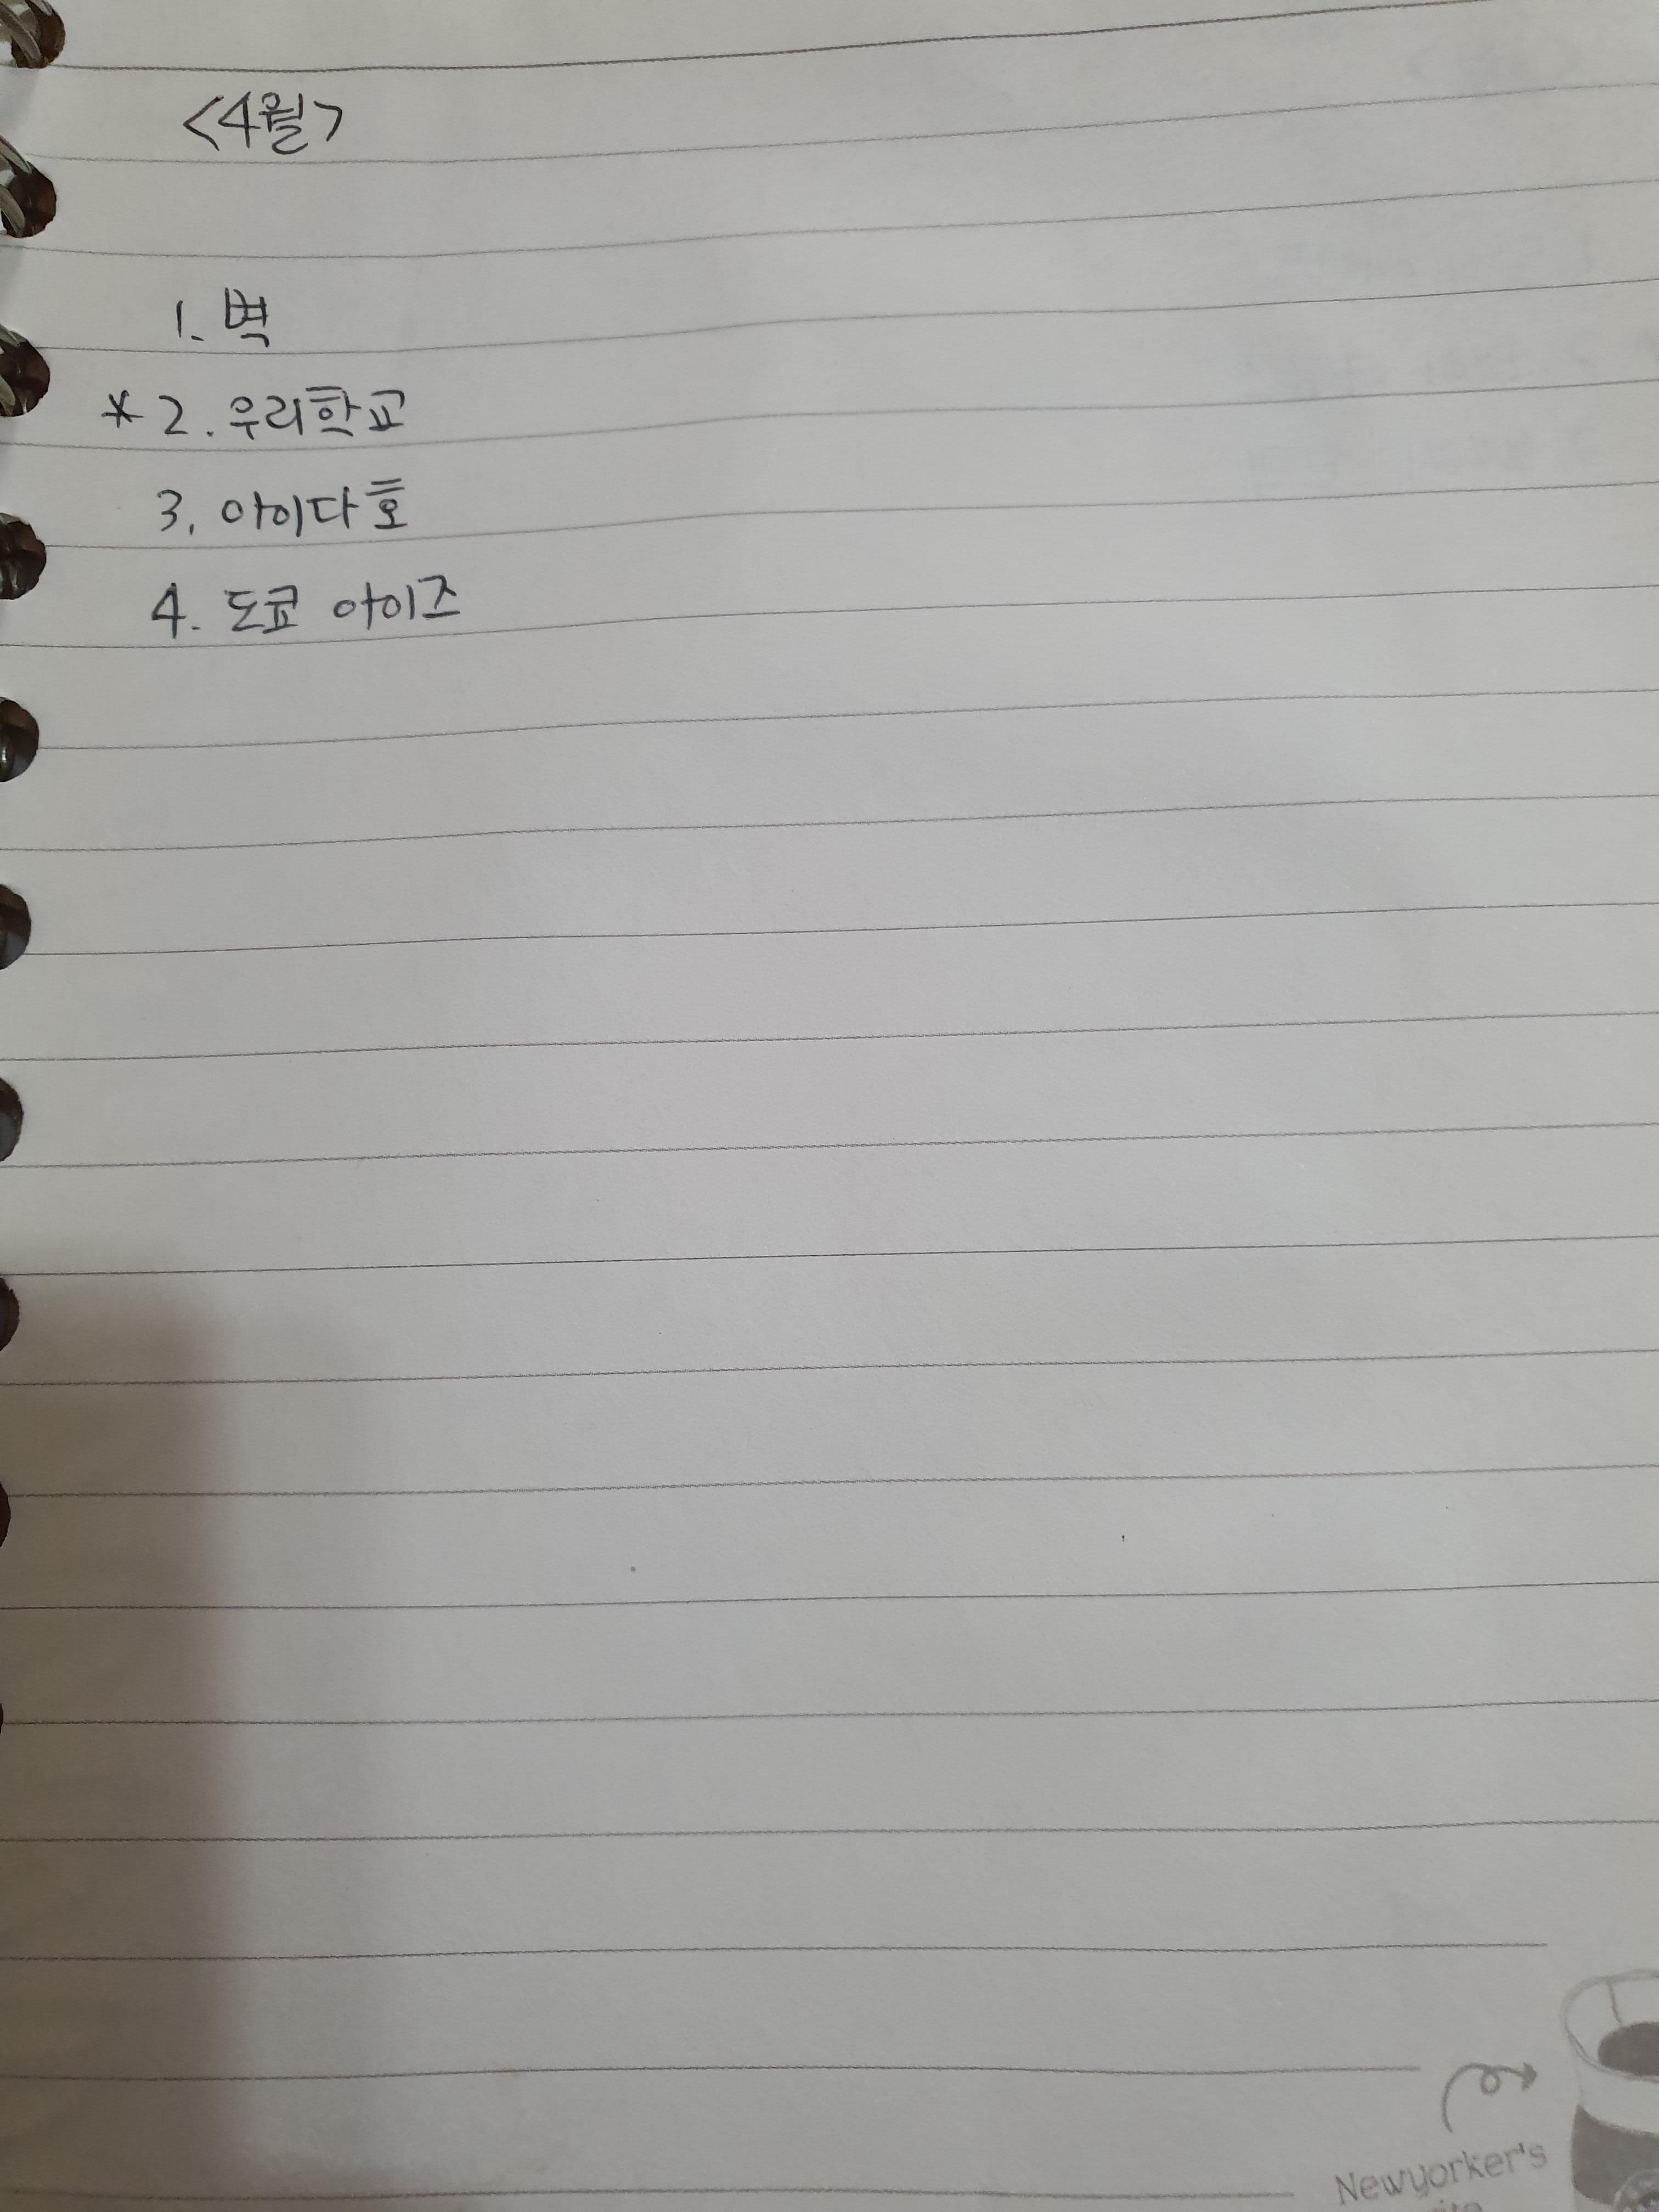 <4월>
1. 벽
* 2. 우리학교
3. 아이다호
4. 도쿄 아이즈
Newyorker's